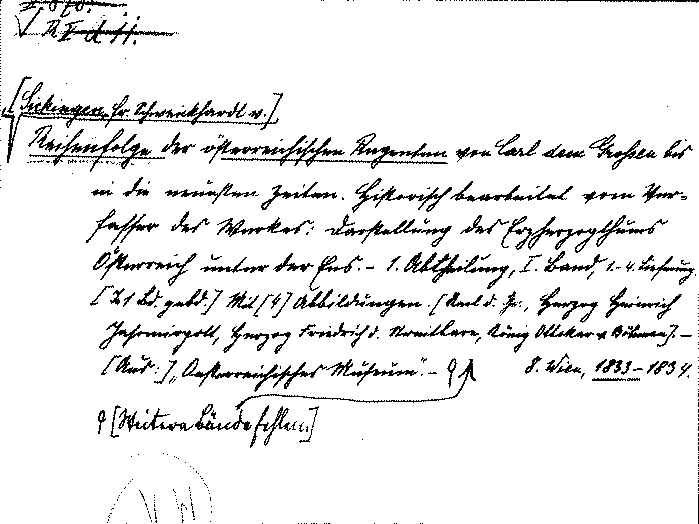 [Sickingen, Fr. Schweickhardt v.]
Reihenfolge der österreichischen Regenten von Carl dem Grossen bis
in die neuesten Zeiten. Historisch bearbeitet vom Ver-
fasser des Werkes: Darstellung des Erzherzogthums
Österreich unter der Ens. – 1. Abtheilung, I. Band, 1.-4. Lieferung.
[Z 1 Bd. gebd.] Mit [4] Abbildungen. [Karl d. Gr., Herzog Heinrich
Jasomirgott, Herzog Friedrich d. Streitbare, König Ottokar v. Böhmen]. –
[Aus:] „Oesterreichisches Museum". – 8. Wien, 1833–1834.
[Weitere Bände fehlen.]